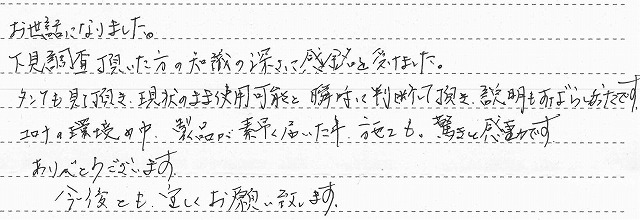 お世話になりました。
下見調査頂いた方の知識の深さに感銘を受けました。
タンクも見て頂き、現状のまま使用可能と瞬時に判断して頂き、説明もすばらしかったです。
コロナの環境の中、製品が素早く届いた事、とても、驚きと感動です
ありがとうございます。
今後とも、宜しくお願い致します。